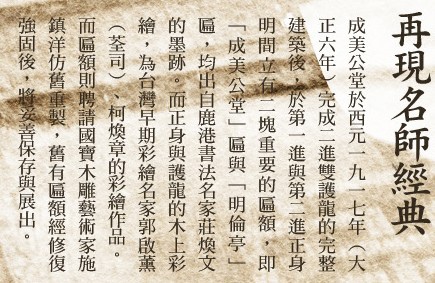 再現名師經典
成美公堂於西元一九一七年（大
正六年）完成二進雙護龍的完整
建築後，於第一進與第二進正身
明間立有二塊重要的匾額，即
「成美公堂」匾與「明倫亭」
匾，均出自鹿港書法名家莊煥文
的墨跡。而正身與護龍的木上彩
繪，為台灣早期彩繪名家郭啟薰
（荃司）、柯煥章的彩繪作品。
而匾額則聘請國寶木雕藝術家施
鎮洋仿舊重製，舊有匾額經修復
強固後，將妥善保存與展出。